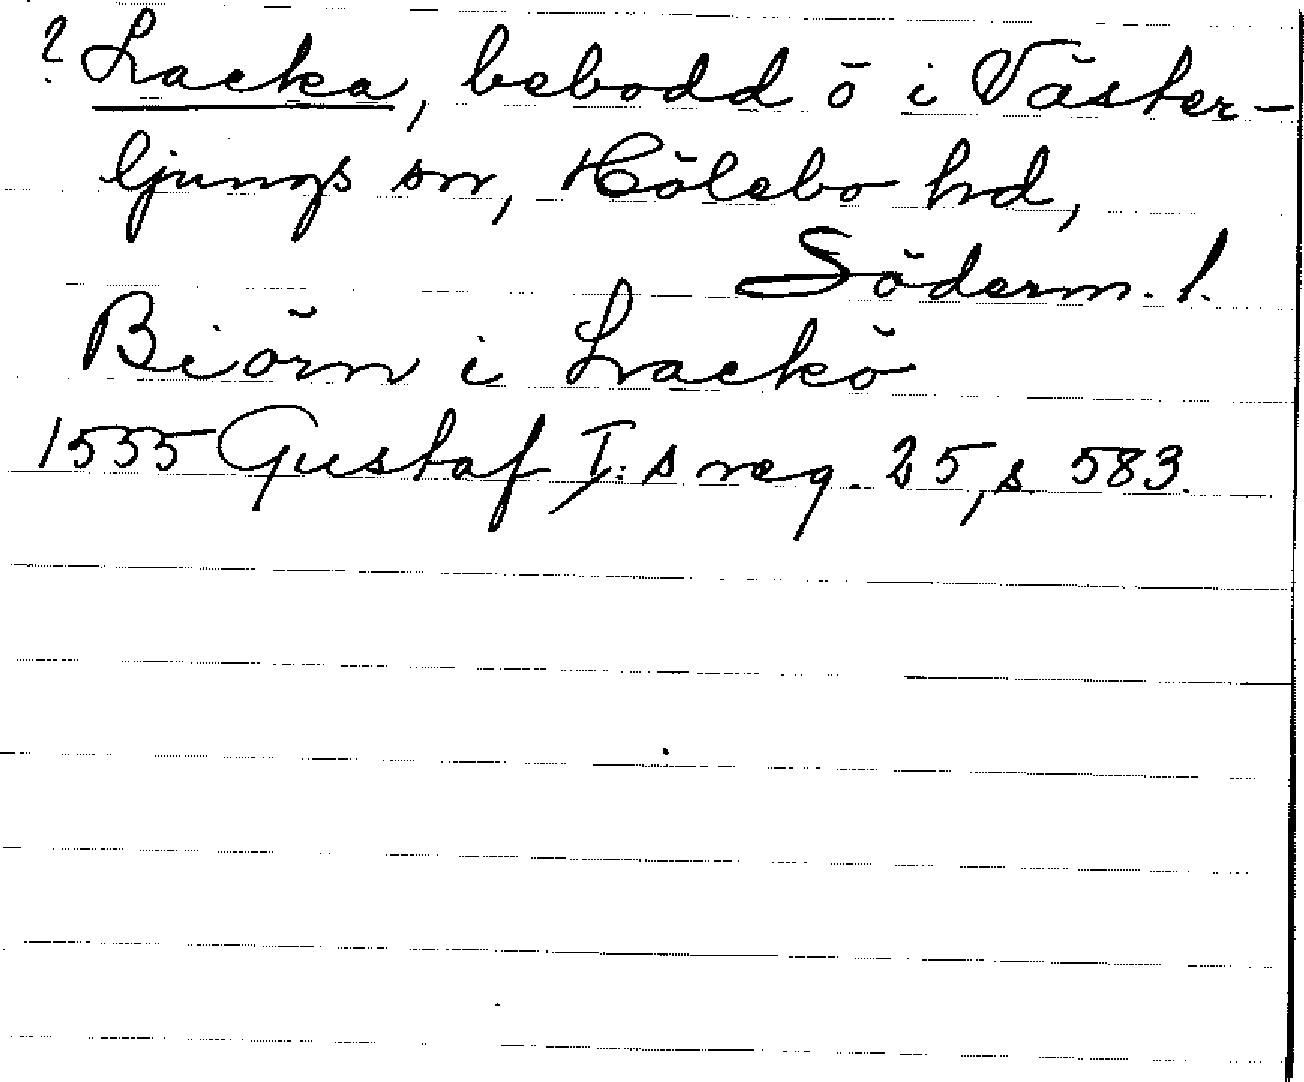 ? Lacka, bebodd ö i Väster-
ljungs sn, Hölebo hd,
Söderm. l.
Biörn i Lackö
1555 Gustaf I:s reg. 25, s 583.